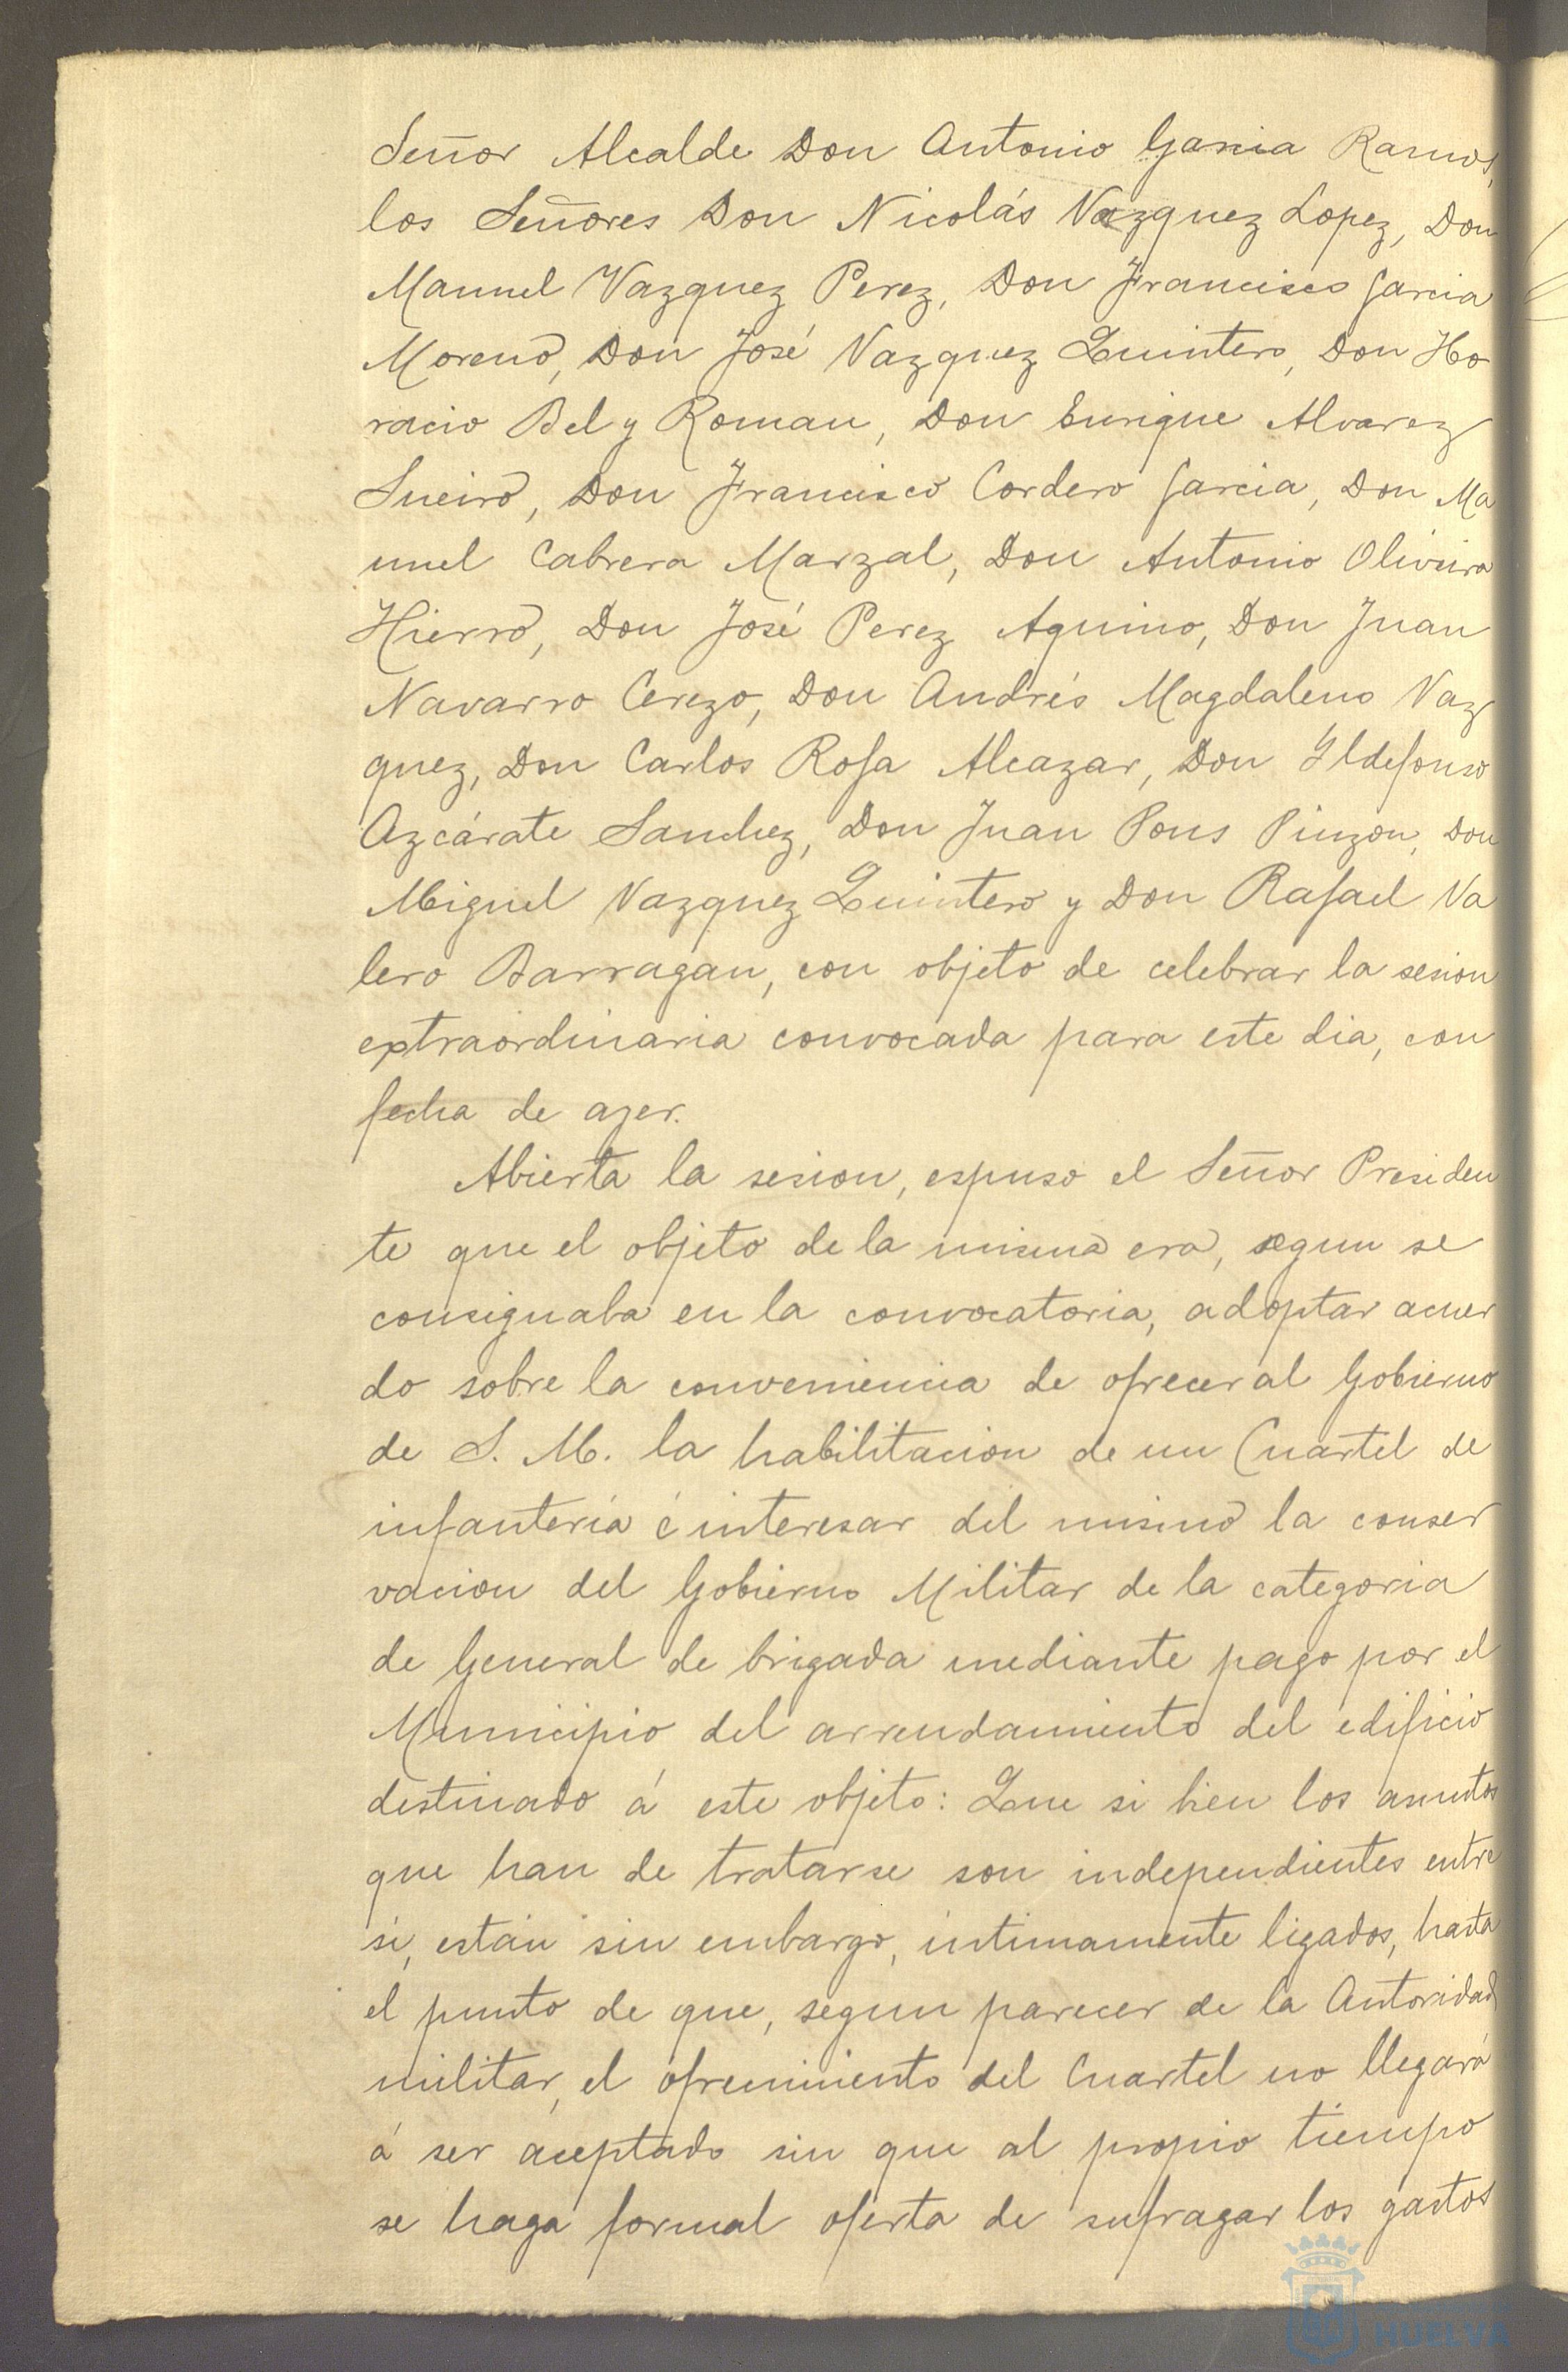 Señor Alcalde Don Antonio Garcia Ramos,
los Señores Don Nicolás Vazquez Lopez, Don
Manuel Vazquez Perez, Don Francisco Garcia
Moreno, Don José Vazquez Quintero, Don Ho
racio Bel y Roman, Don Enrique Alvarez
Sueiro, Don Francisco Cordero Garcia, Don Ma
nuel Cabrera Marzal, Don Antonio Oliveira
Hierro, Don José Perez Aquino, Don Juan
Navarro Cerezo, Don Andrés Magdaleno Vaz
quez, Don Carlos Rosa Alcazar, Don Yldefonso
Azcárate Sanchez, Don Juan Pons Pinzon, Don
Miguel Vazquez Quintero y Don Rafael Va
lero Barragan, con objeto de celebrar la sesion
extraordinaria convocada para este dia, con
fecha de ayer.
Abierta la sesion, espuso el Señor Presiden
te que el objeto de la misma era, segun se
consignaba en la convocatoria, adoptar acuer
do sobre la conveniencia de ofrecer al Gobierno
de S. M. la habilitacion de un Cuartel de
infantería é interesar del mismo la conser
vacion del Gobierno Militar de la categoria
de General de brigada mediante pago por el
Municipio del arrendamiento del edificio
destinado á este objeto: Que si bien los asuntos
que han de tratarse son independientes entre
si, están sin embargo, intimamente ligados, hasta
el punto de que, segun parecer de la Autoridad
militar, el ofrecimiento del Cuartel no llegará
á ser aceptado sin que al propio tiempo
se haga formal oferta de sufragar los gastos
HUELVA